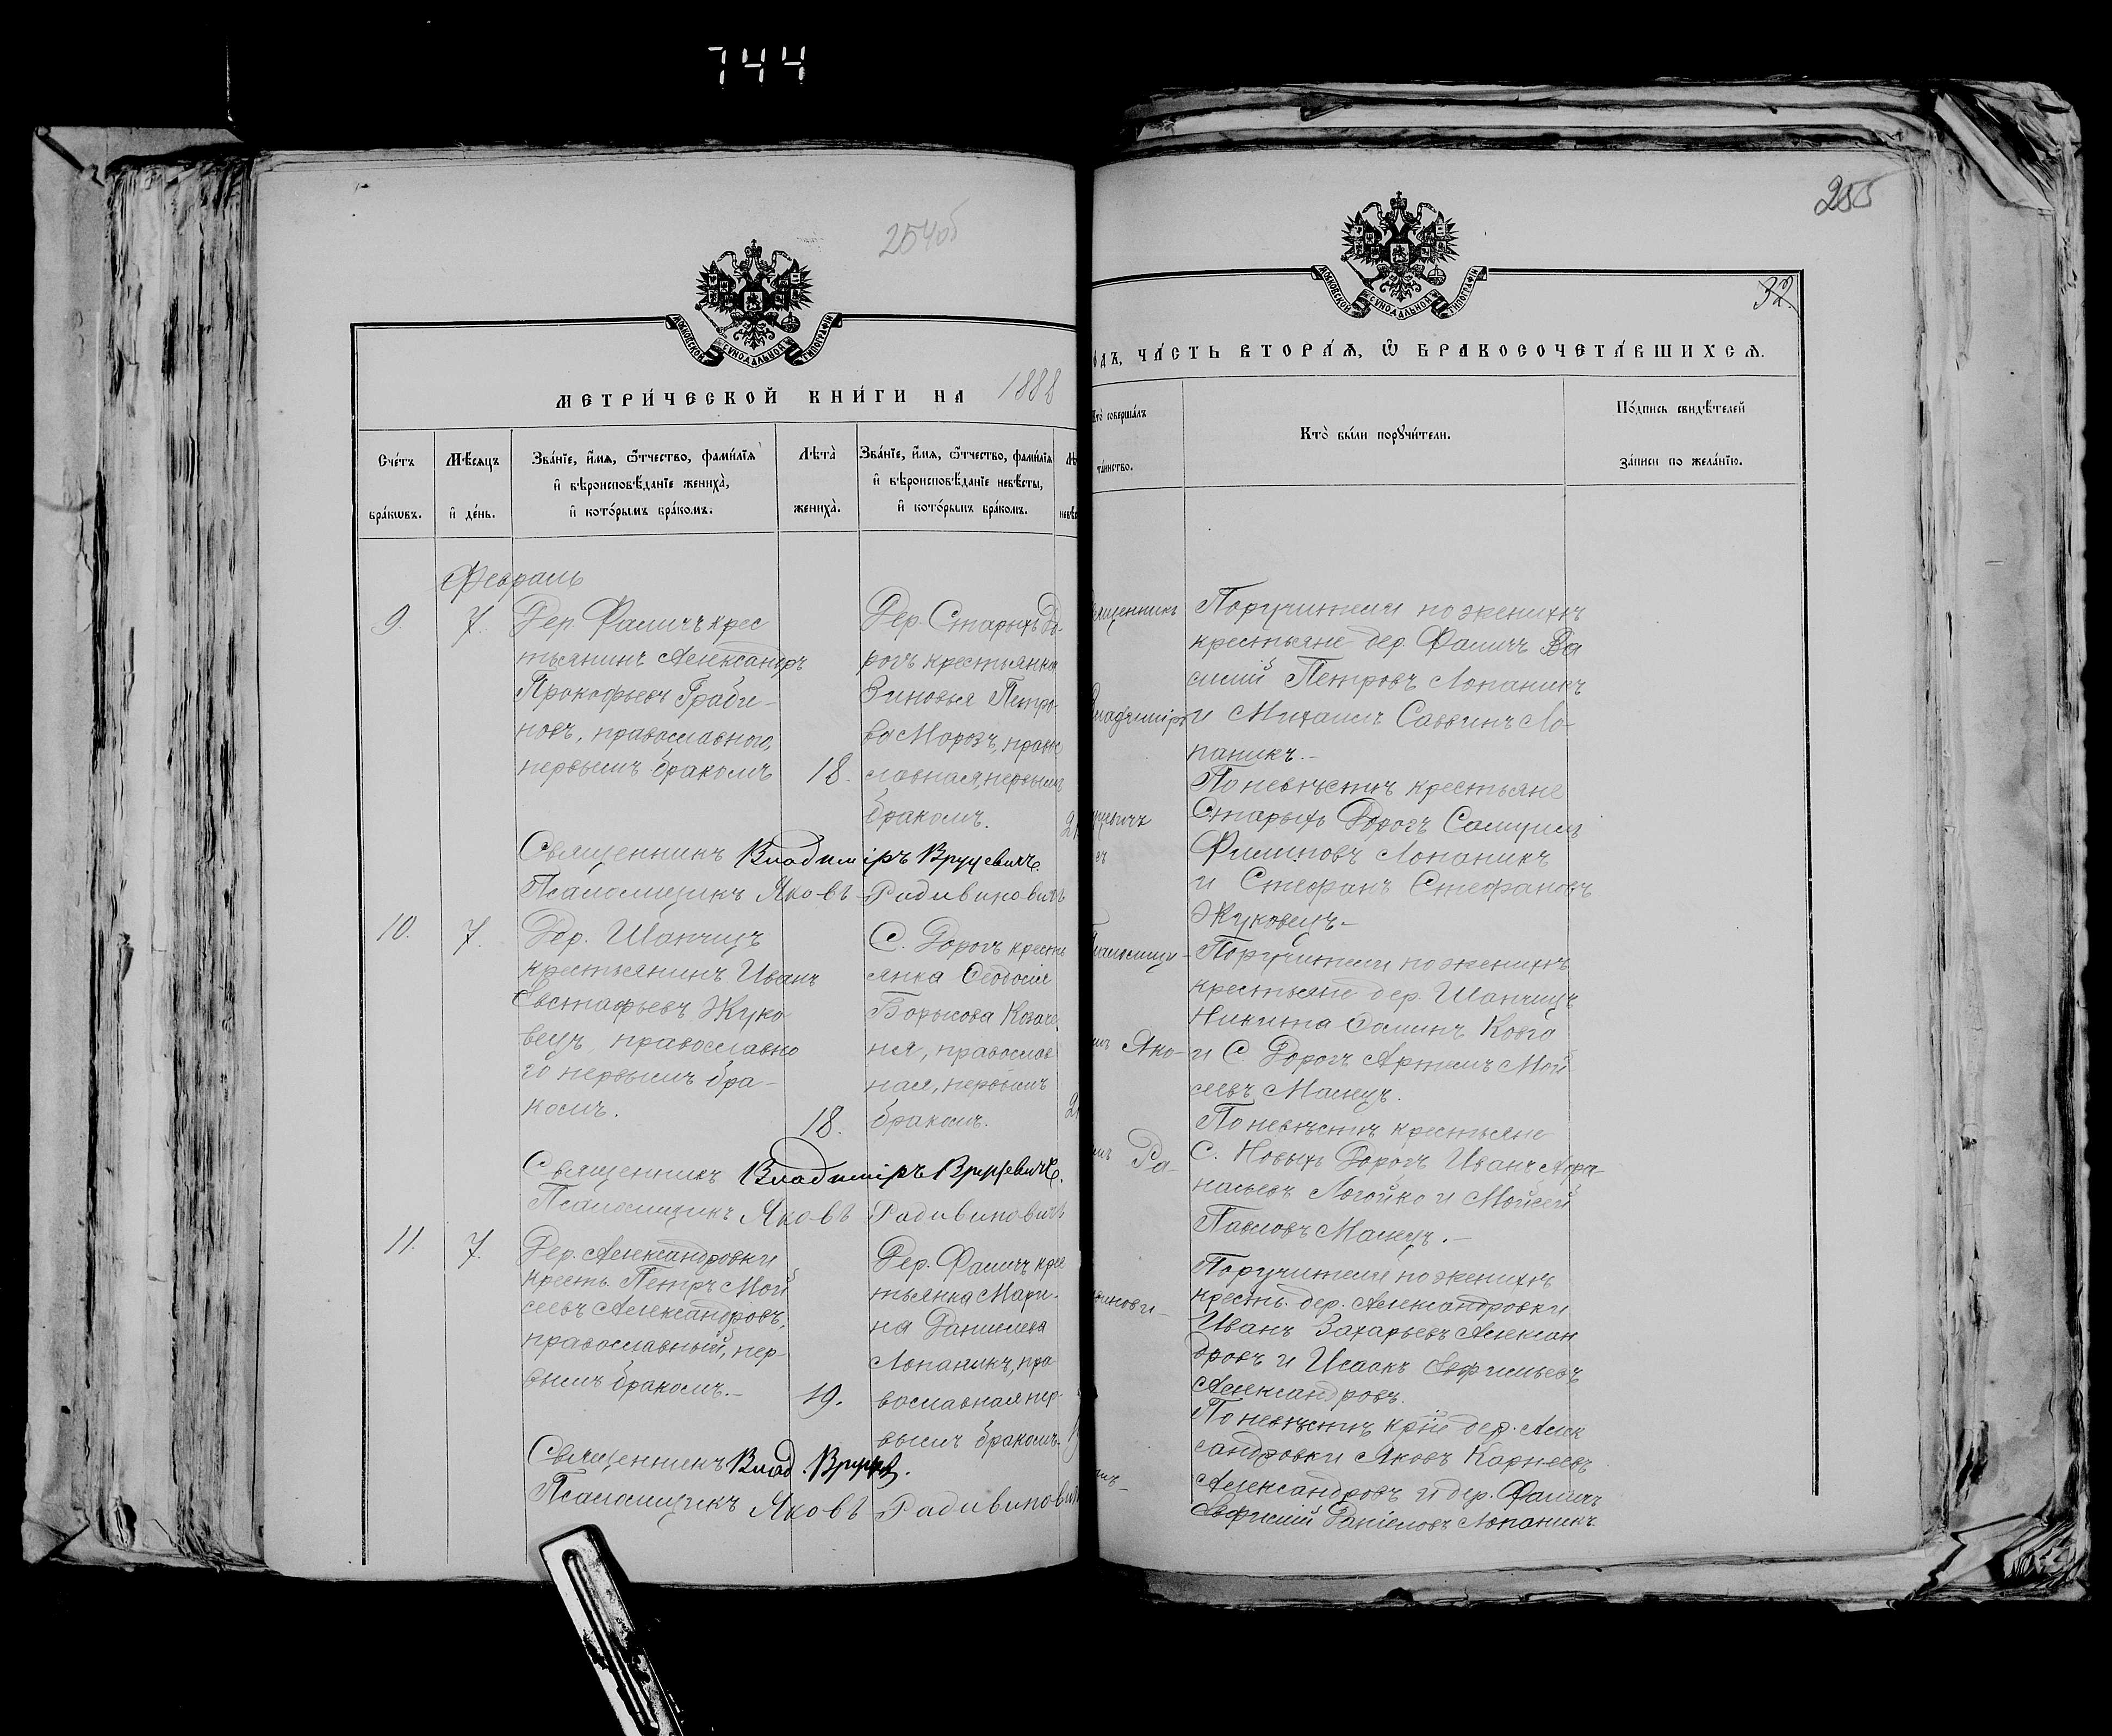 744
254об
МОСКОВСКОЙ СѴНОДАЛЬНОЙ ТИПОГРАФІИ
МЕТРИ́ЧЕСКОЙ КНИ́ГИ НА 1888
Сче́тъ бра́кωвъ.
Мѣ́сяцъ и҆ де́нь.
Зва́нїе, и҆́мѧ, ѻ҆́тчество, фами́лїѧ
и҆ вѣроисповѣ́данїе жениха̀,
и҆ кото́рымъ бра́комъ.
Лѣта̀ жениха̀.
Зва́нїе, и҆́мѧ, ѻ҆́тчество, фами́лїѧ
и҆ вѣроисповѣ́данїе невѣ́сты,
и҆ кото́рымъ бра́комъ.
Февраль
9. 7.
Дер. Фаличъ крес
тьянинъ Александръ
Прокофьевъ Граби-
новъ, православного,
первымъ бракомъ
18.
Дер. Старыхъ До-
рогъ крестьянка
Зиновья Петро-
ва Морозъ, право
славная, первымъ
бракомъ.
Священникъ Владиміръ Вруцевичъ.
Псаломщикъ Яковъ Радивиновичъ
10. 7.
Дер. Шапчицъ
крестьянинъ Иванъ
Евстафьевъ Жуко
вецъ, православно
го первымъ бра-
комъ.
18.
С. Дорогъ кресть
янка Ѳеодосія
Борисова
ня, православ
ная, первымъ
бракомъ.
Священникъ Владиміръ Вруцевичъ.
Псаломщикъ Яковъ Радивиновичъ
11. 7.
Дер. Александровки
кресть. Петръ Мой
сеевъ Александровъ,
православный, пер-
вымъ бракомъ.-
19.
Дер. Фаличъ крес
тьянка Мари-
на Данилева
Лопаникъ, пра
вославная пер
вымъ бракомъ.
Священникъ Влад. Вруцев.
Псаломщикъ Яковъ Радивинович
255
32.
МОСКОВСКОЙ СѴНОДАЛЬНОЙ ТИПОГРАФІИ
ОДЪ, ЧА́СТЬ ВТОРА́Ѧ, Ѽ БРАКОСОЧЕТА́ВШИХСѦ.
Кто̀ соверша́лъ
та́инство.
Кто̀ бы́ли порꙋчи́тели.
По́дпись свидѣ́телей
за́писи по жела́нїю.
Поручители по женихѣ
крестьяне дер. Фаличъ Ва
силій Петровъ Лопаникъ
и Михаилъ Саввинъ Ло-
паникъ.-
По невѣстѣ крестьяне
Старыхъ Дорогъ Самуилъ
Филиповъ Лопаникъ
и Стефанъ Стефановъ
Жуковецъ-
Поручители по женихѣ
крестьяне дер. Шапчицъ
Никита Ковга
и С. Дорогъ Артемъ Мой
сеевъ Малецъ.
По невѣстѣ крестьяне
С. Новыхъ Дорогъ Иванъ Афа-
насьевъ Логойко и Мойсей
Павловъ Малецъ.-
Поручители по женихѣ
кресть. дер. Александровки
Иванъ Захарьевъ Алексан
дровъ и Исаакъ Евфимьевъ
Александровъ.
По невѣстѣ кр̃не дер. Алек
сандровки Яковъ Карнеевъ
Александровъ и дер. Фаличъ
Евфимій Даніиловъ Лопаникъ